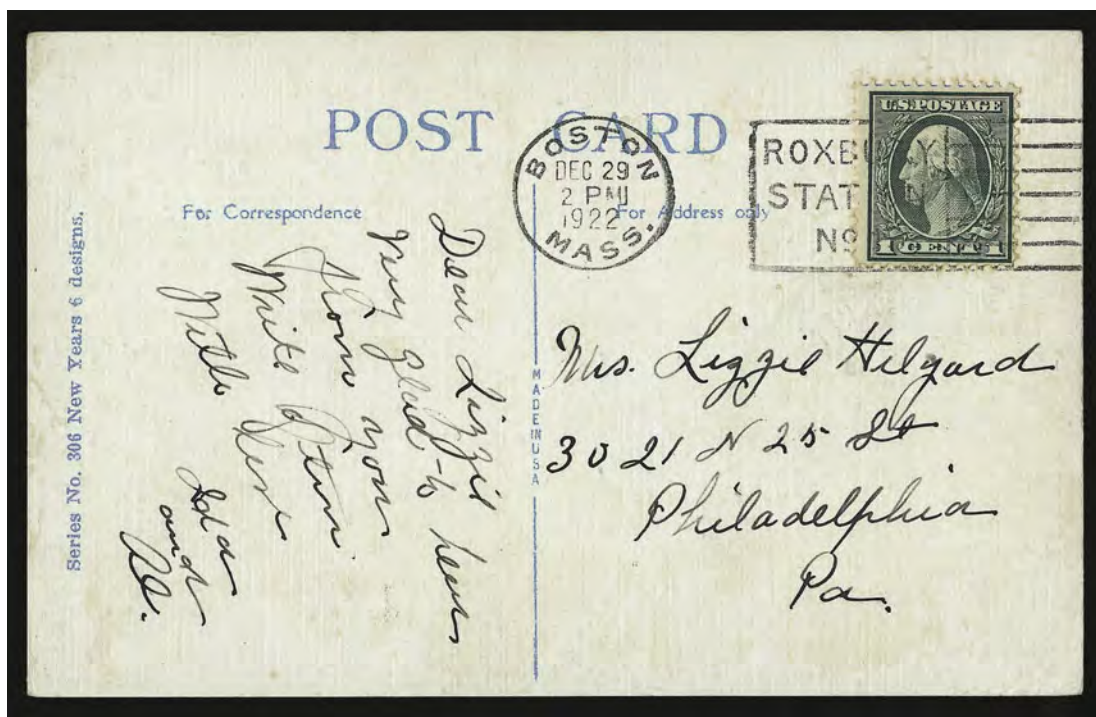 POST CARD
BOSTON
MASS.
DEC 29
2 PM
1922
ROXBURY
STAT
No
U.S. POSTAGE
1 CENT 1
For Correspondence
For Address only
Series No. 306 New Years 6 designs.
MADE IN USA
Dear Lizzie
Very glad to hear
from you
Write
With Love
Ida
and
Al.
Mrs. Lizzie Hilgard
3021 N 25 St
Philadelphia
Pa.